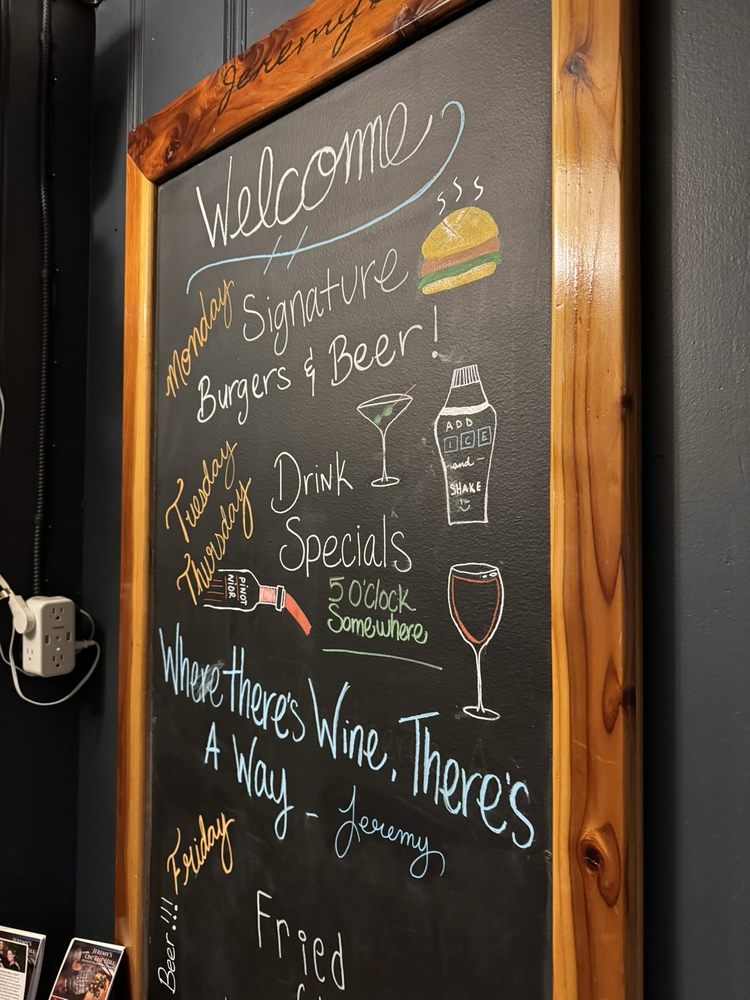 Jeremy's
Welcome
Monday
Signature
Burgers & Beer!
ADD
ICE
-and-
SHAKE
Tuesday
Thursday
Drink
Specials
PINOT
NIOR
5 O'Clock
Somewhere
Where there's Wine, There's
A Way - Jeremy
Friday
Beer!!!
Fried
JEREMY'S
ON THE HILL